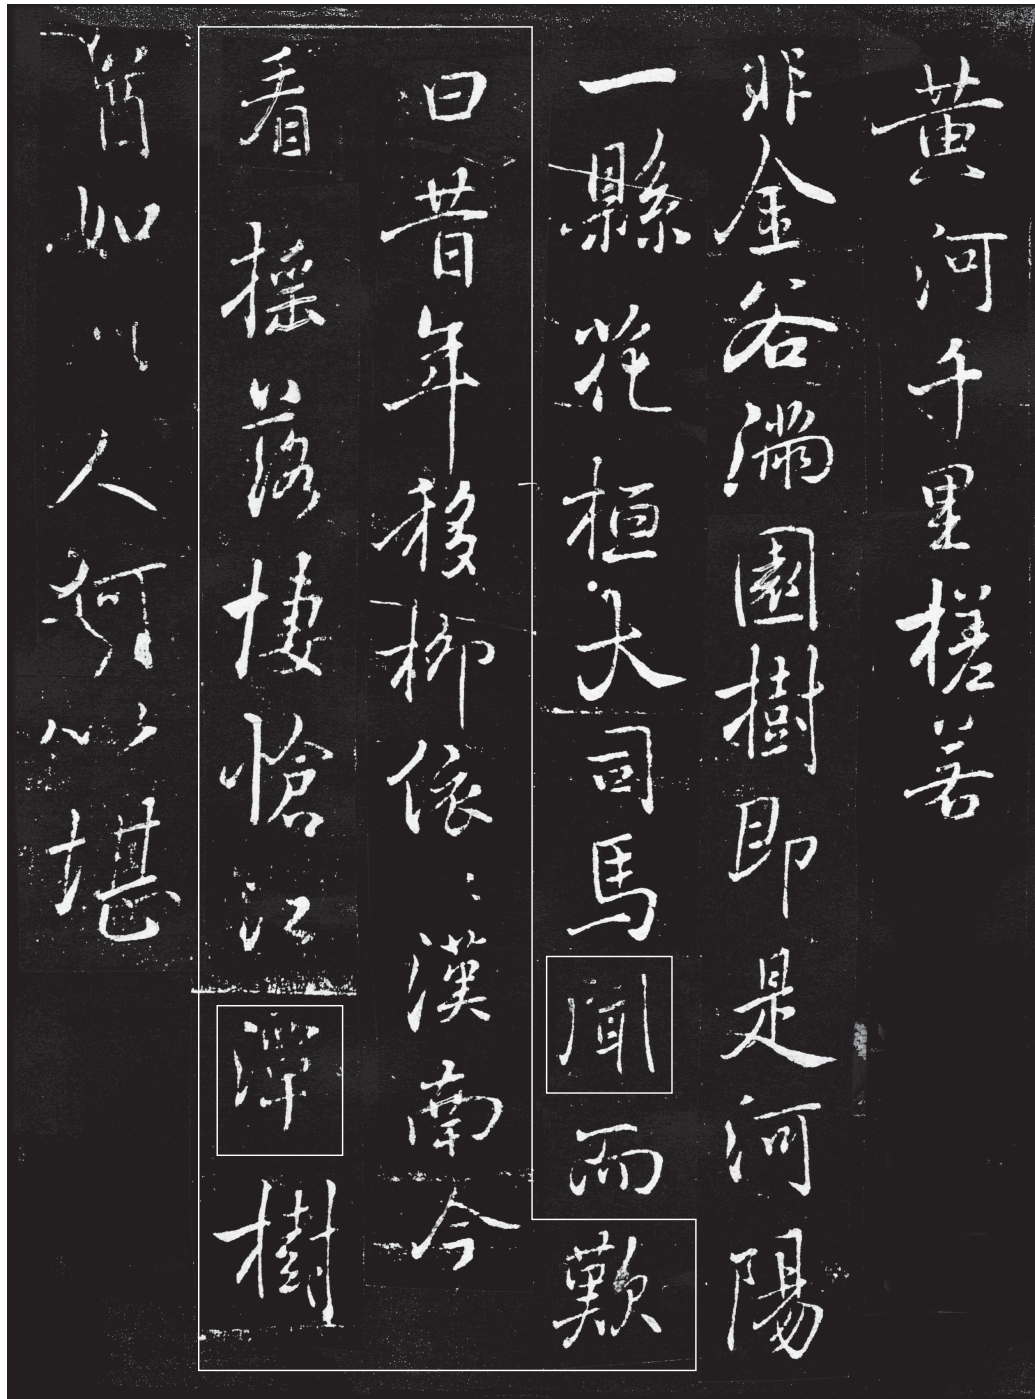 黃河千里槎若
非金谷滿園樹即是河陽
一縣花桓大司馬聞而歎
曰昔年移柳依〻漢南今
看搖落悽愴江潭樹
猶如此人何以堪